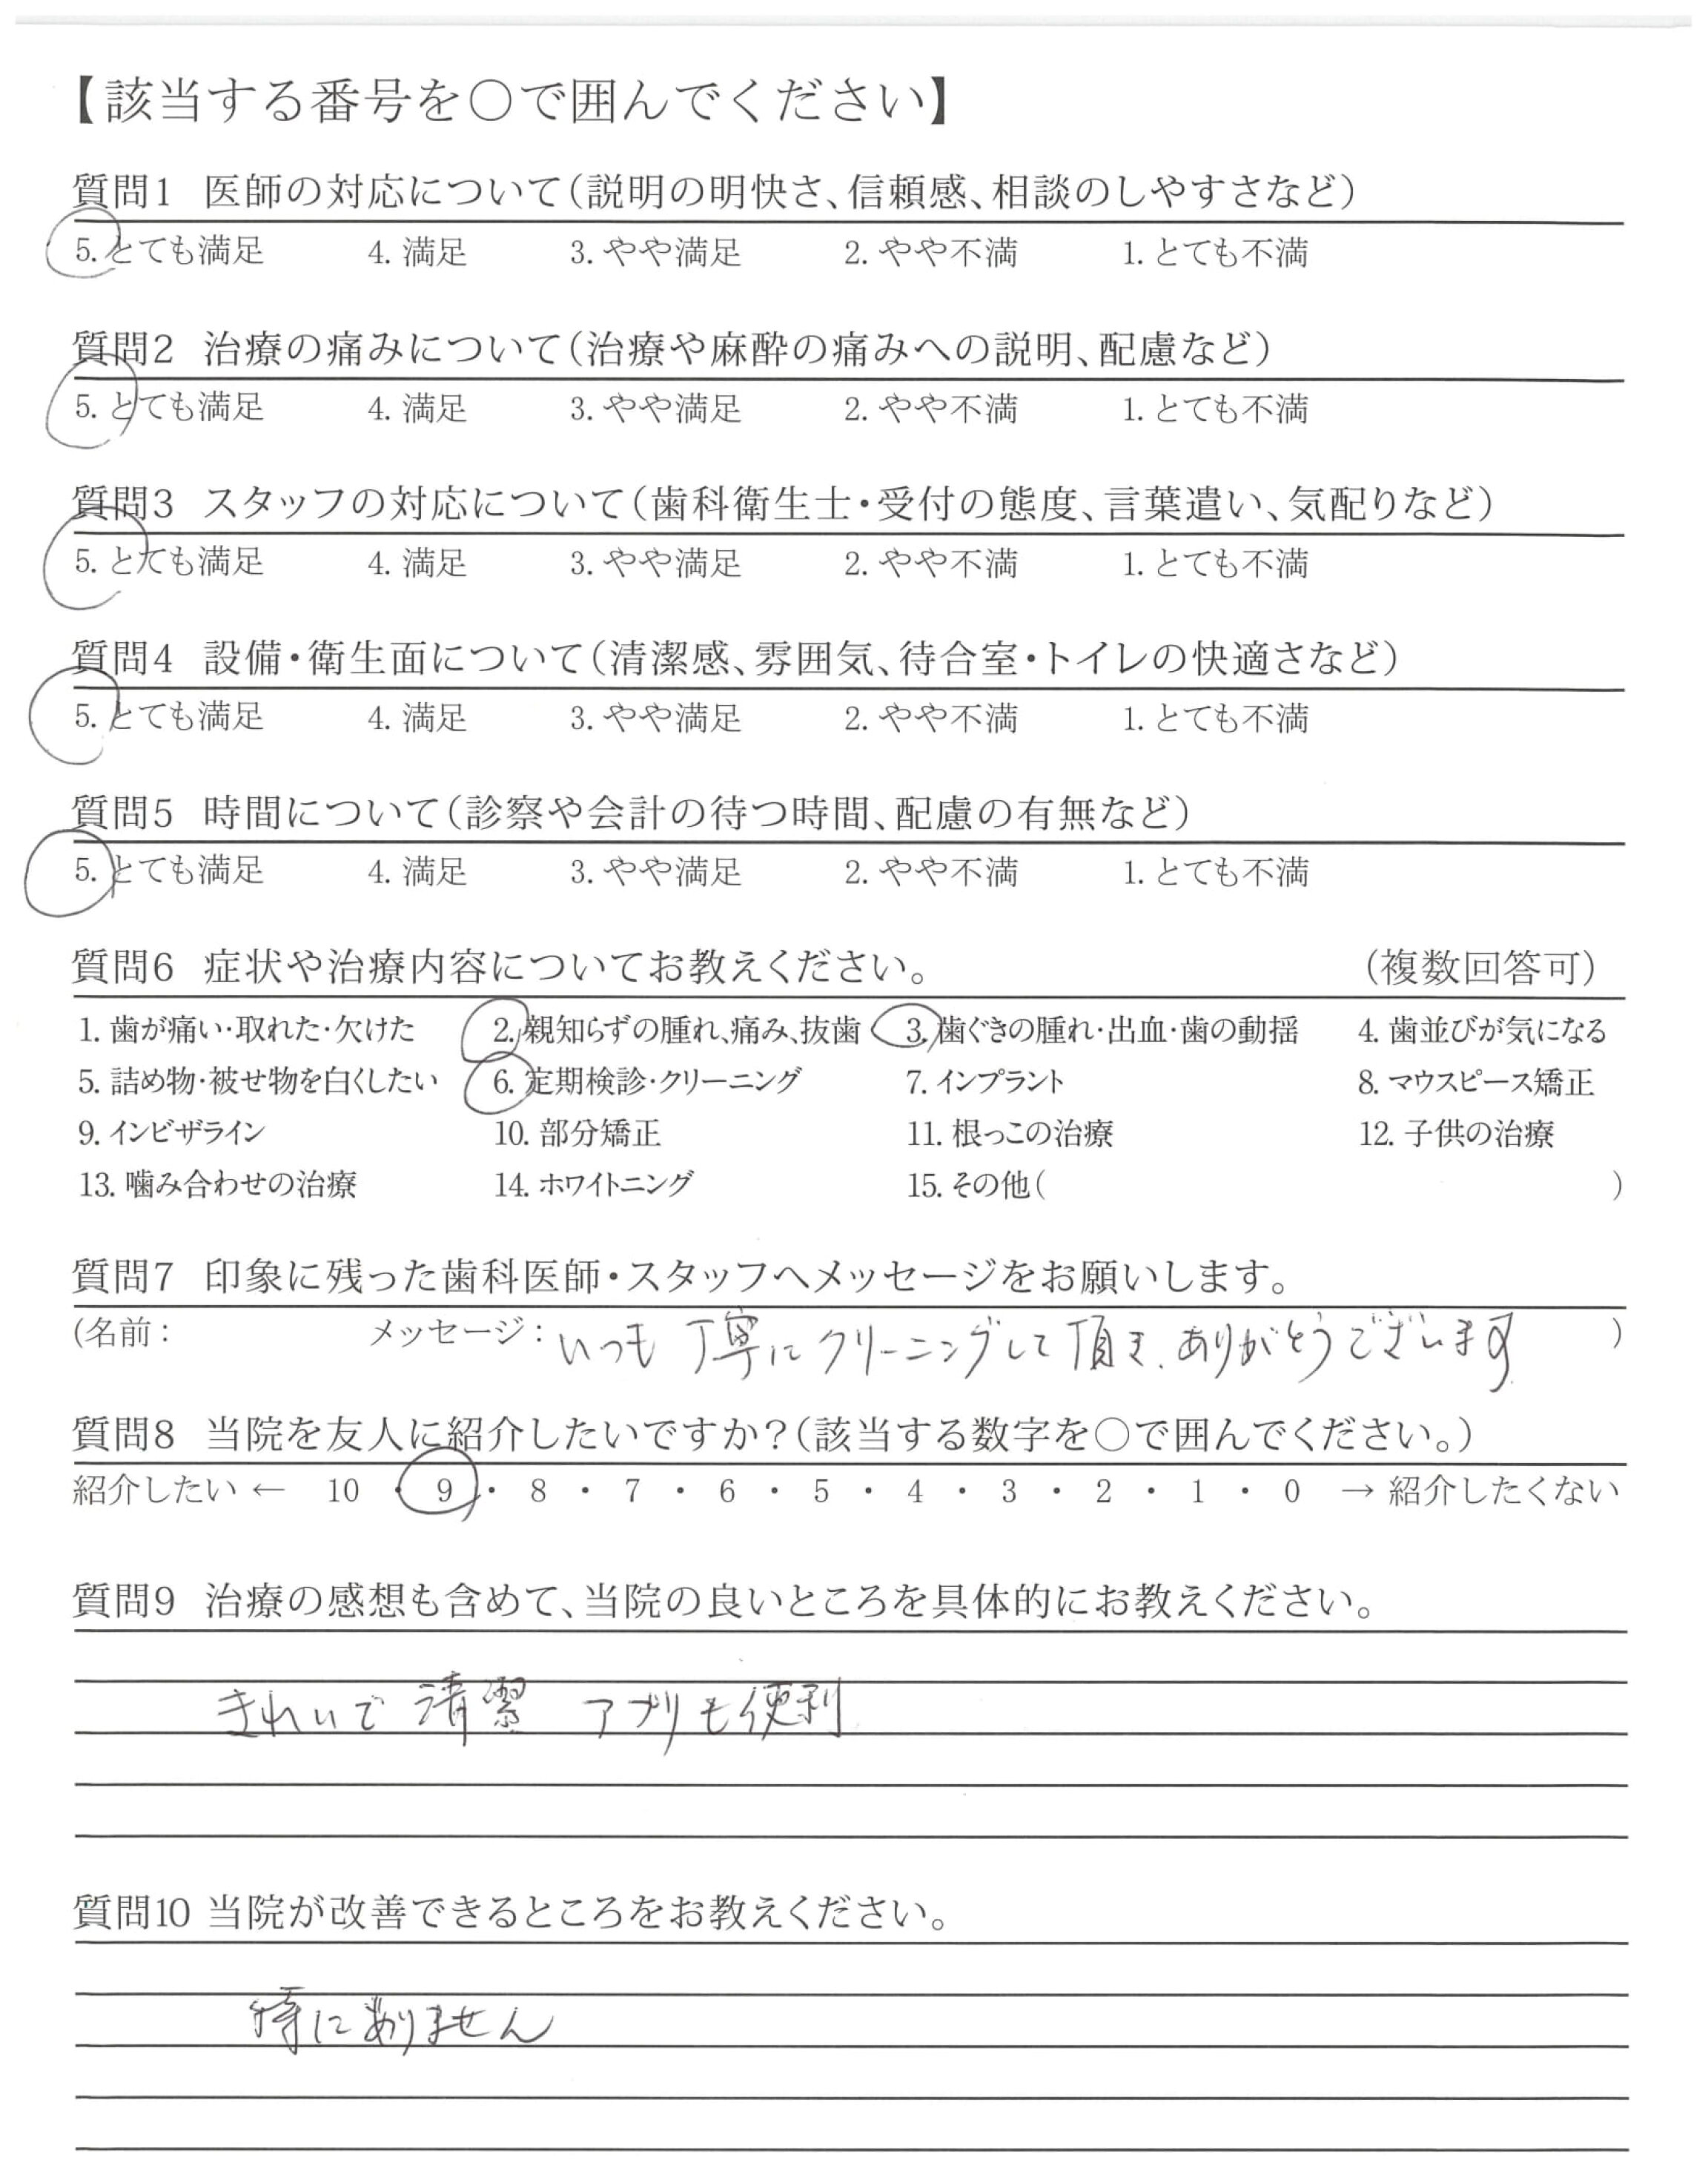 【該当する番号を○で囲んでください】
質問1 医師の対応について(説明の明快さ、信頼感、相談のしやすさなど)
5. とても満足 4. 満足 3. やや満足 2. やや不満 1. とても不満
質問2 治療の痛みについて(治療や麻酔の痛みへの説明、配慮など)
5. とても満足 4. 満足 3. やや満足 2. やや不満 1. とても不満
質問3 スタッフの対応について(歯科衛生士・受付の態度、言葉遣い、気配りなど)
5. とても満足 4. 満足 3. やや満足 2. やや不満 1. とても不満
質問4 設備・衛生面について(清潔感、雰囲気、待合室・トイレの快適さなど)
5. とても満足 4. 満足 3. やや満足 2. やや不満 1. とても不満
質問5 時間について(診察や会計の待つ時間、配慮の有無など)
5. とても満足 4. 満足 3. やや満足 2. やや不満 1. とても不満
質問6 症状や治療内容についてお教えください。 (複数回答可)
1. 歯が痛い・取れた・欠けた 2. 親知らずの腫れ、痛み、抜歯 3. 歯ぐきの腫れ・出血・歯の動揺 4. 歯並びが気になる
5. 詰め物・被せ物を白くしたい 6. 定期検診・クリーニング 7. インプラント 8. マウスピース矯正
9. インビザライン 10. 部分矯正 11. 根っこの治療 12. 子供の治療
13. 噛み合わせの治療 14. ホワイトニング 15. その他( )
質問7 印象に残った歯科医師・スタッフへメッセージをお願いします。
(名前: メッセージ: いつも 丁寧に クリーニングして頂き、ありがとうございます )
質問8 当院を友人に紹介したいですか?(該当する数字を○で囲んでください。)
紹介したい ← 10 ・ 9 ・ 8 ・ 7 ・ 6 ・ 5 ・ 4 ・ 3 ・ 2 ・ 1 ・ 0 → 紹介したくない
質問9 治療の感想も含めて、当院の良いところを具体的にお教えください。
きれいで 清潔 アプリも便利
質問10 当院が改善できるところをお教えください。
特にありません